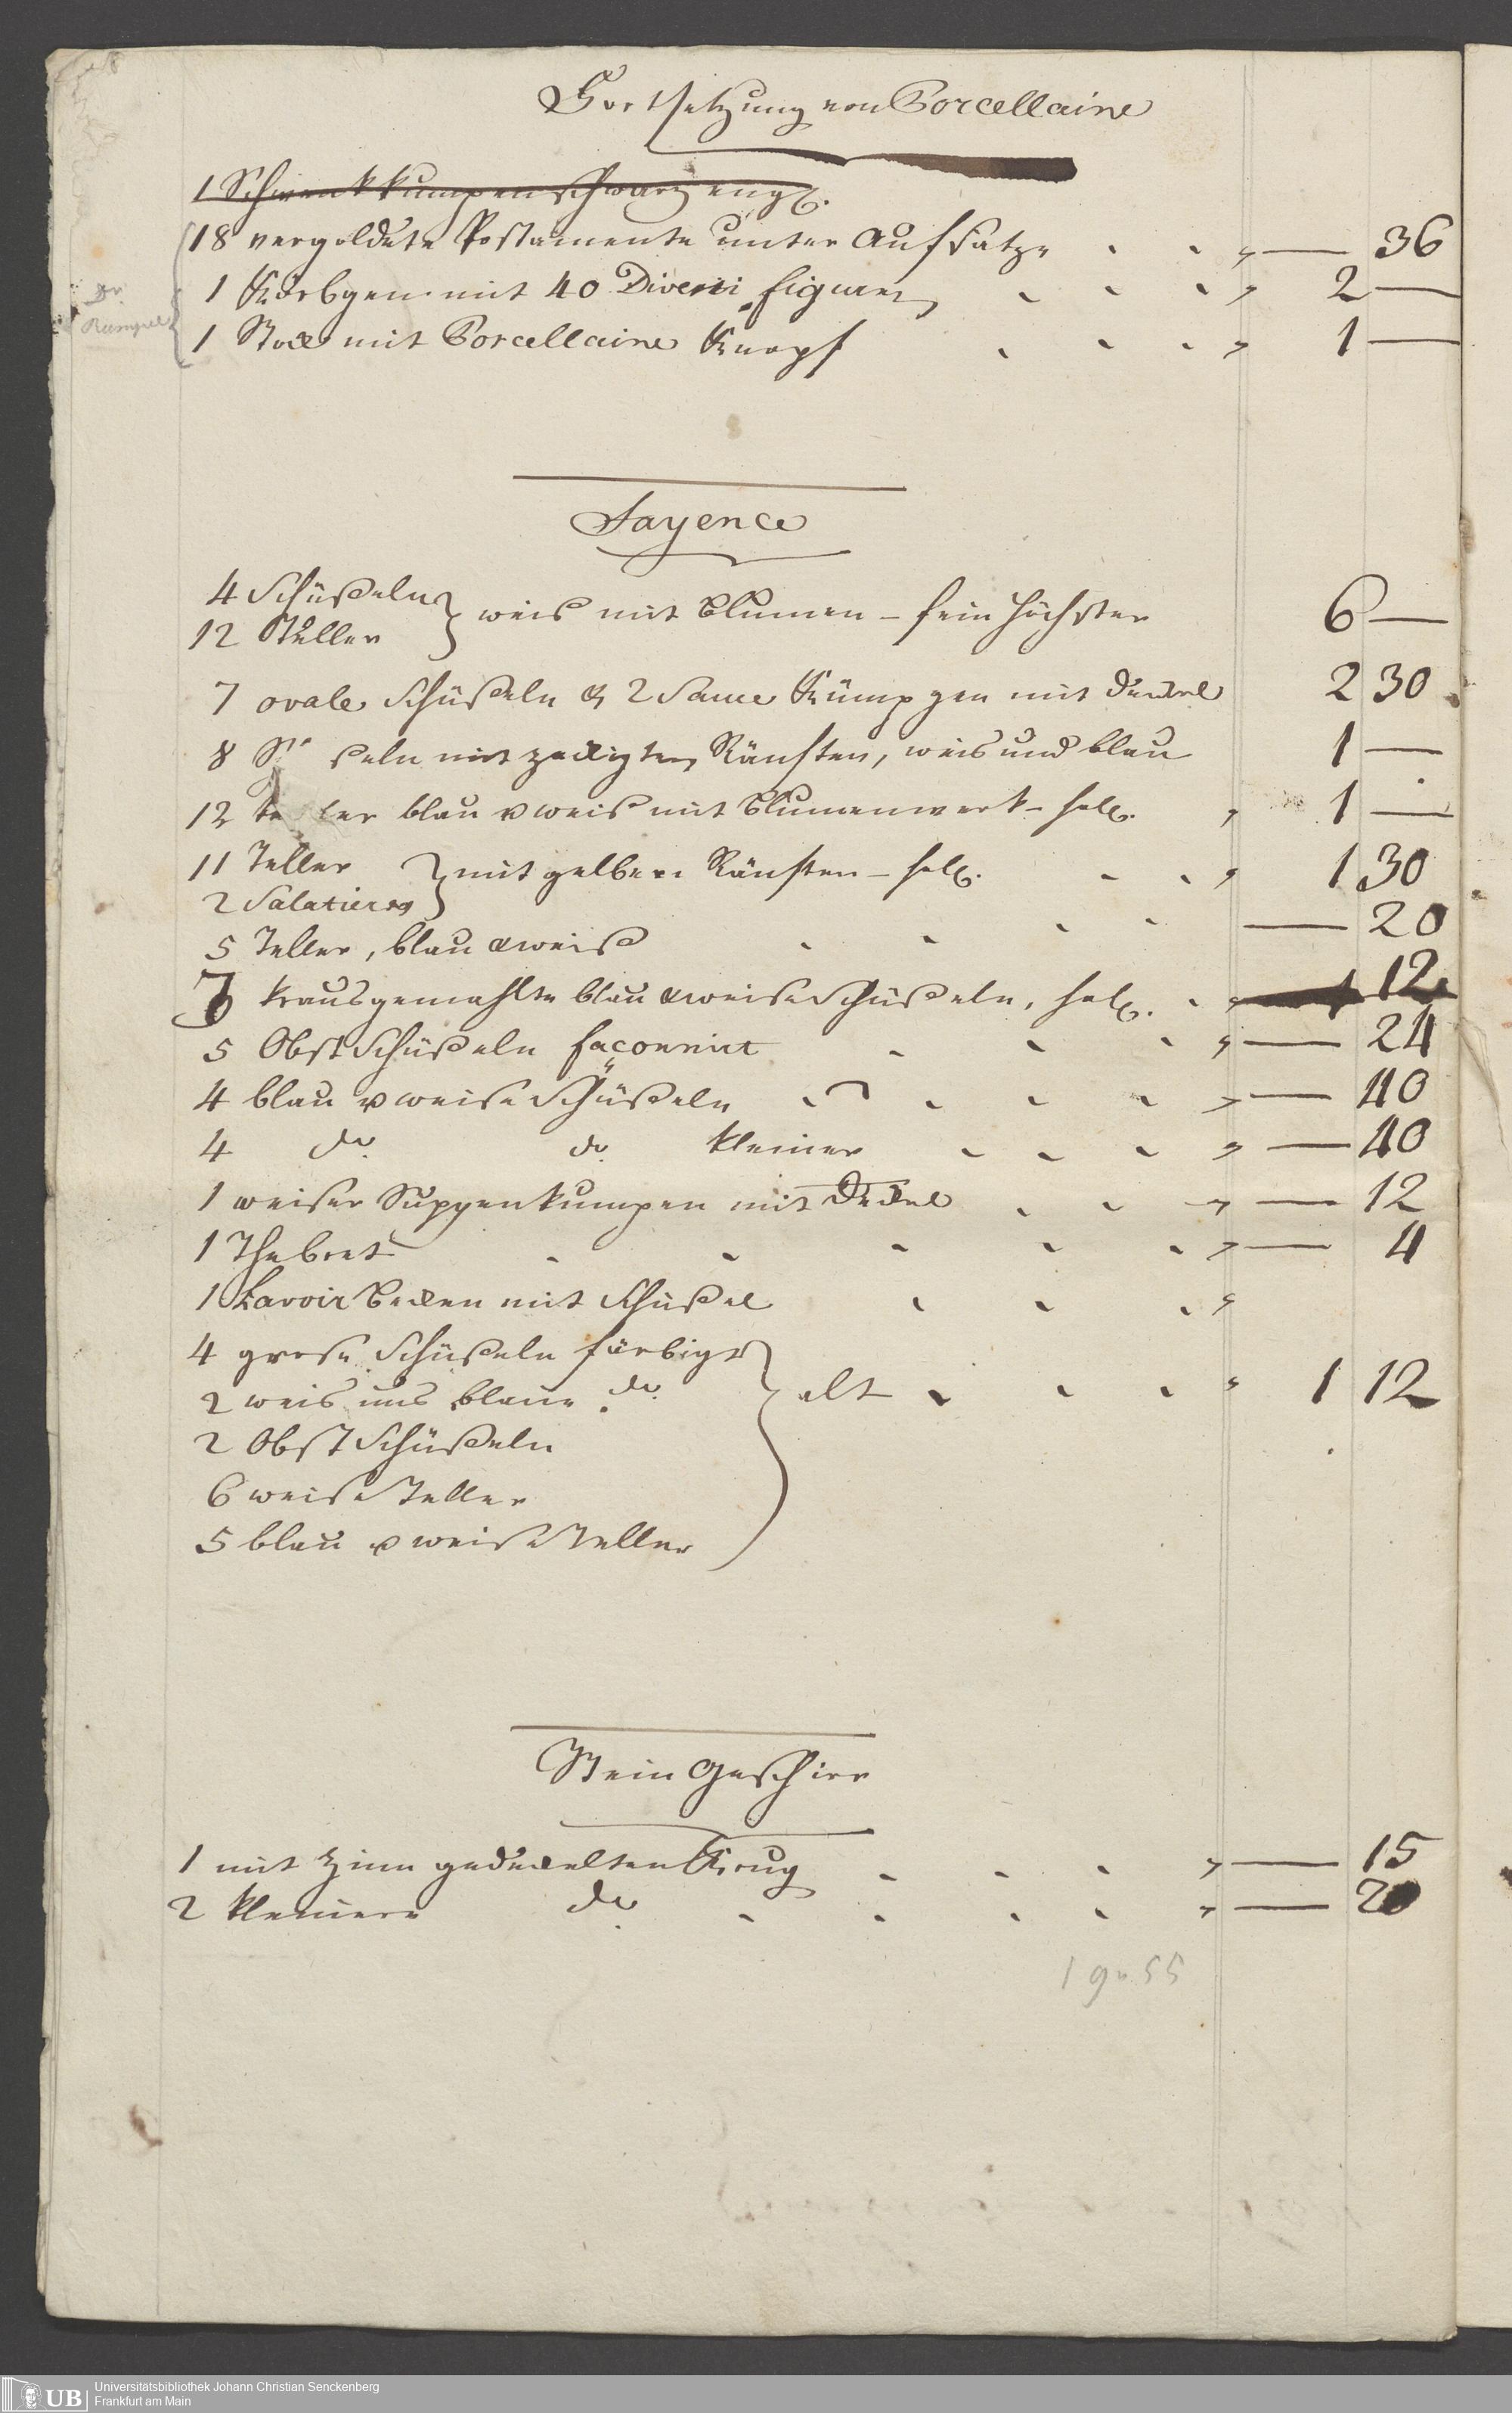 Fortsetzung von Porcellaine
1 Schwenkkumpen schwarz engl.
18 vergoldete Postamente unter Aufsätze " — 36
1 Körbgen mit 40 Diversi figuren " 2 —
1 Stock mit Porcellaine Knopf " 1 —
Dr.
Fayence
4 Schüßeln
12 Teller } weis mit Blumen – fein Höchster 6 —
7 ovale Schüßeln & 2 Sauce Kümpgen mit Deckel 2 30
8 Sc ßeln mit zackigten Ränften, weis und blau 1 —
12 te ler blau u weis mit Blumenwerk – holl. " 1 —
11 Teller
2 Salatiers } mit gelben Ränften – holl. " 1 30
5 Teller, blau & weiß — 20
7 krausgemahlte blau & weise Schüßeln, holl. " 12
5 Obst Schüßeln façonnirt " — 24
4 blau u weise Schüßeln " — 40
4 do. do. kleiner " — 40
1 weiser Suppenkumpen mit Deckel " — 12
1 Thebret " — 4
1 Lavoir Becken mit Schüßel "
4 grose Schüßeln färbigt
2 weis und blaue do. } alt " 1 12
2 Obst Schüßeln
6 weise Teller
5 blau u weise Teller
Stein Geschirr
1 mit Zinn gedeckelten Krug " — 15
2 kleinere do. " — 20
19 " 55
Universitätsbibliothek Johann Christian Senckenberg
Frankfurt am Main
UB